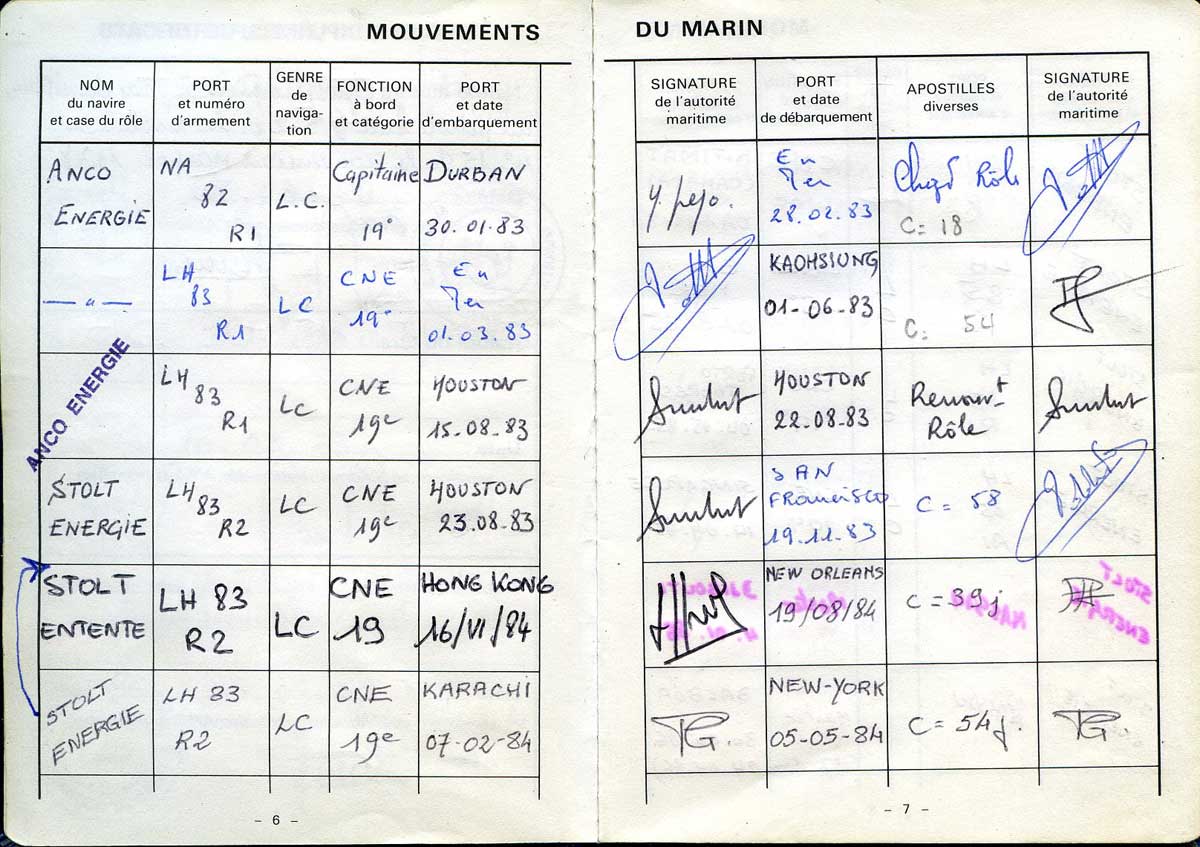 MOUVEMENTS DU MARIN
NOM
du navire
et case du rôle
PORT
et numéro
d'armement
GENRE
de
naviga-
tion
FONCTION
à bord
et catégorie
PORT
et date
d'embarquement
SIGNATURE
de l'autorité
maritime
PORT
et date
de débarquement
APOSTILLES
diverses
SIGNATURE
de l'autorité
maritime
ANCO
ENERGIE
NA
82
R1
L.C.
Capitaine
19°
DURBAN
30.01.83
En
Mer
28.02.83
Chgt Rôle
C = 18
— " —
LH
83
R1
LC
CNE
19°
En
Mer
01.03.83
KAOHSIUNG
01-06-83
C = 54
ANCO ENERGIE
LH
83
R1
LC
CNE
19e
HOUSTON
15-08-83
HOUSTON
22.08.83
Renouvt
Rôle
STOLT
ENERGIE
LH
83
R2
LC
CNE
19e
HOUSTON
23.08.83
SAN
FRANCISCO
19.11.83
C = 58
STOLT
ENTENTE
LH 83
R2
LC
CNE
19
HONG KONG
16/VI/84
NEW ORLEANS
19/08/84
C = 39 j
STOLT
ENERGIE
LH 83
R2
LC
CNE
19e
KARACHI
07-02-84
TG
NEW-YORK
05-05-84
C = 54 j.
TG
- 6 -
- 7 -